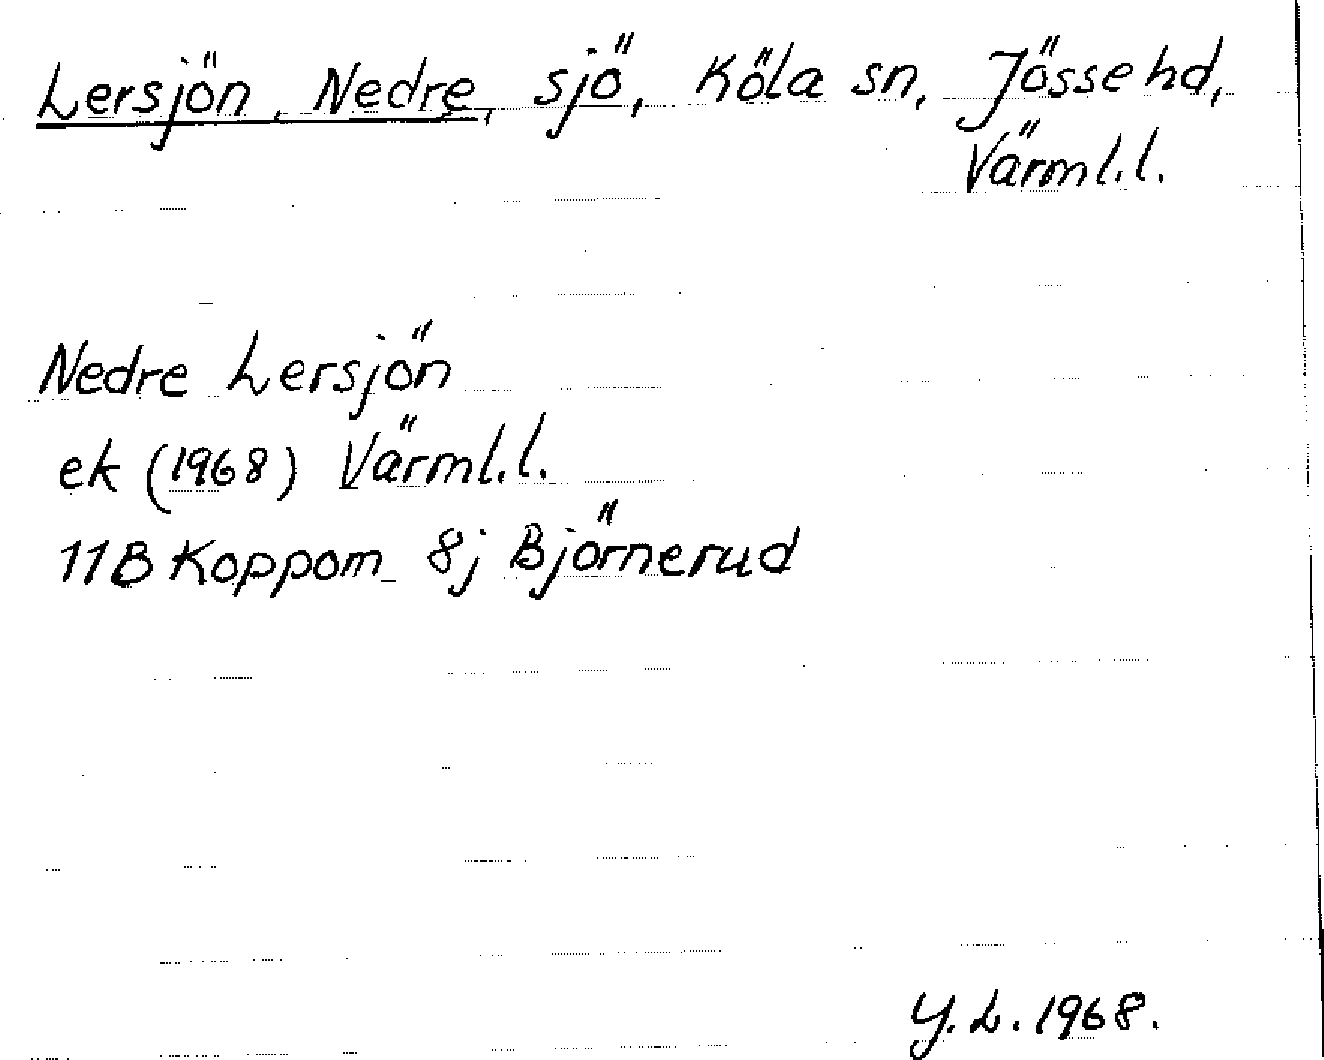 Lersjön, Nedre, sjö, Köla sn, Jösse hd,
Värml.l.
Nedre Lersjön
ek (1968) Värml.l.
11B Koppom 8j Björnerud
Y.L. 1968.